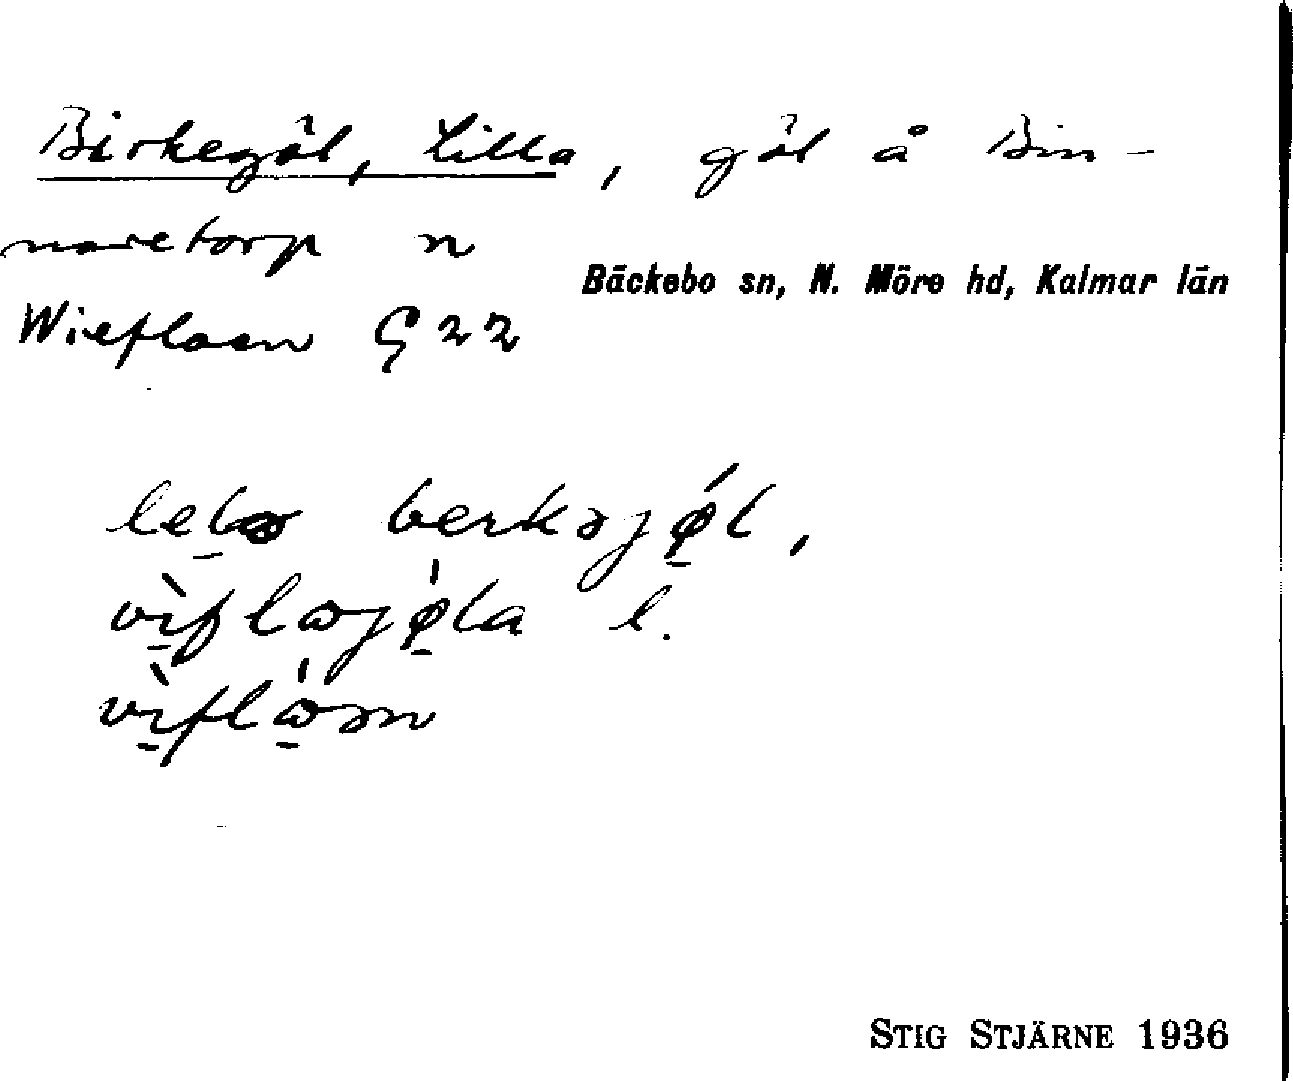 Birkegöl, Lilla, göl å Bin-
naretorp n
Bäckebo sn, N. Möre hd, Kalmar län
Wieflaen G 22
berkəjøl,
viflajøla l.
STIG STJÄRNE 1936